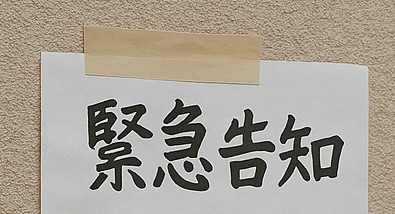 緊急告知